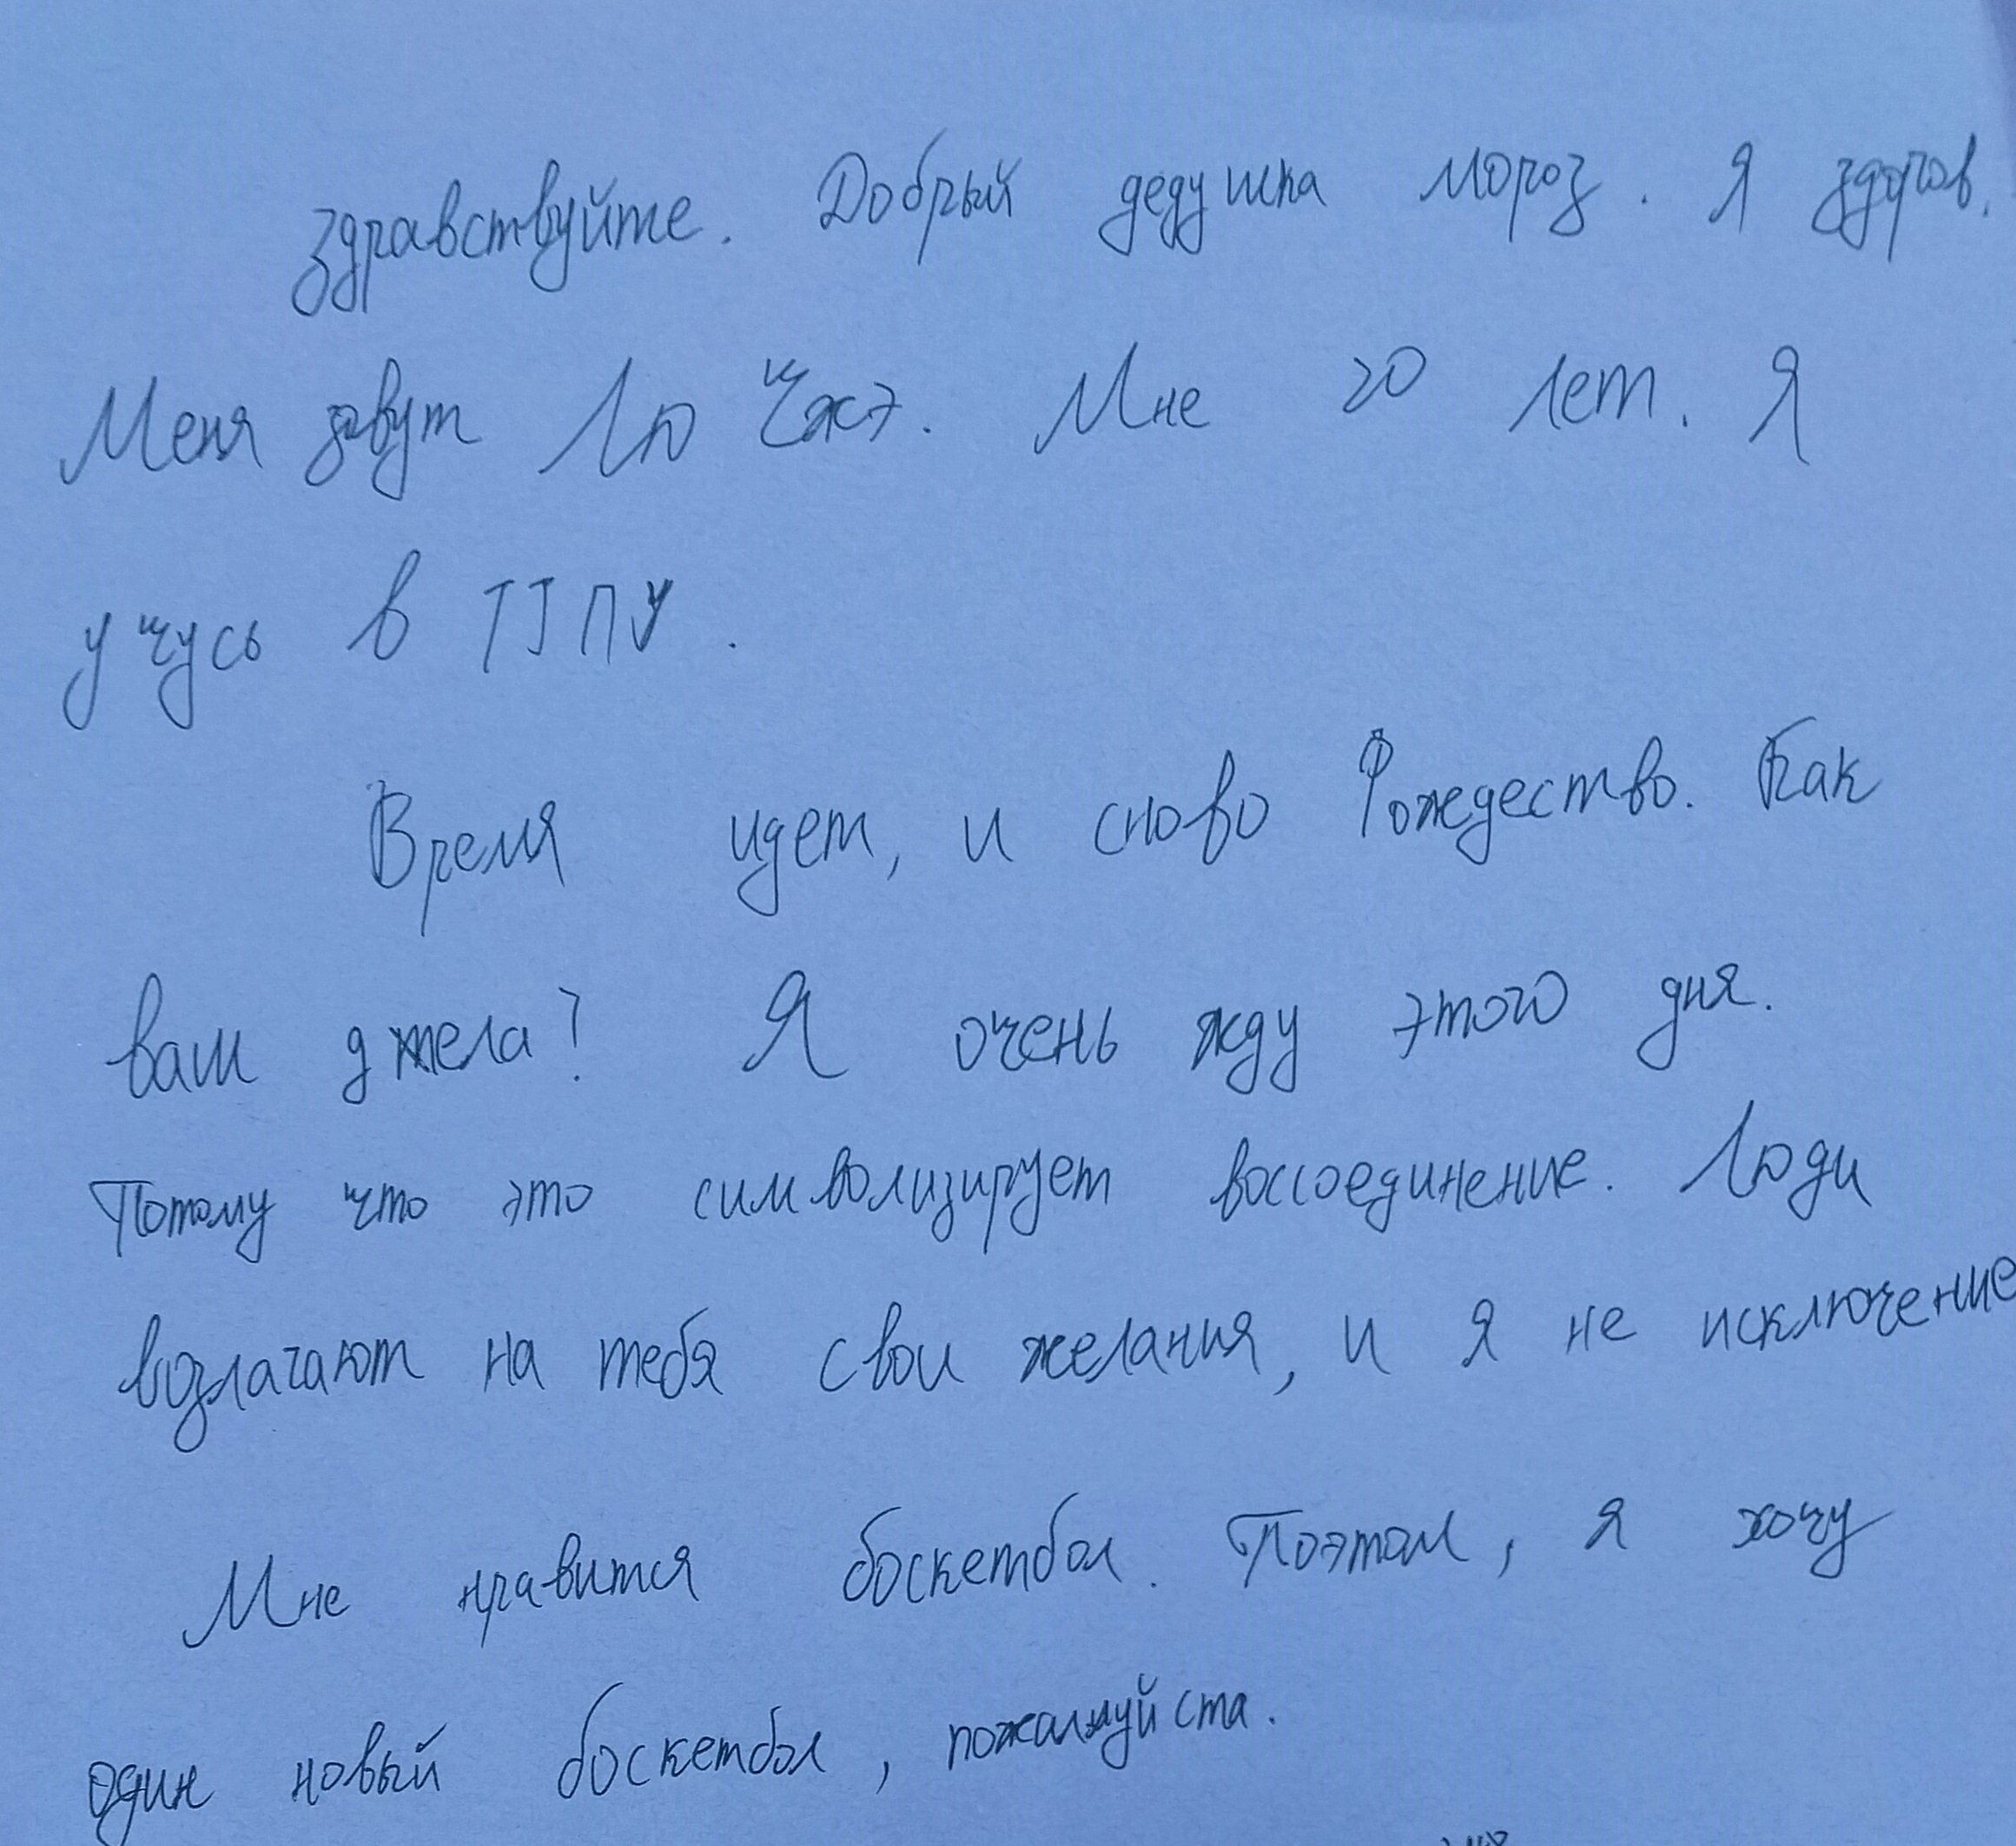 здравствуйте. Добрый дедушка мороз. Я здоров.
Меня зовут Лю Чжэ. Мне 20 лет. Я
учусь в ТГПУ.
Время идет, и сново Рождество. Как
ваш дела? Я очень жду этого дня.
Потому что это символизирует воссоединение. Люди
возлагают на тебя свои желания, и я не исключение
Мне нравится боскетбол. Поэтом, я хочу
один новый боскетбол, пожалуйста.